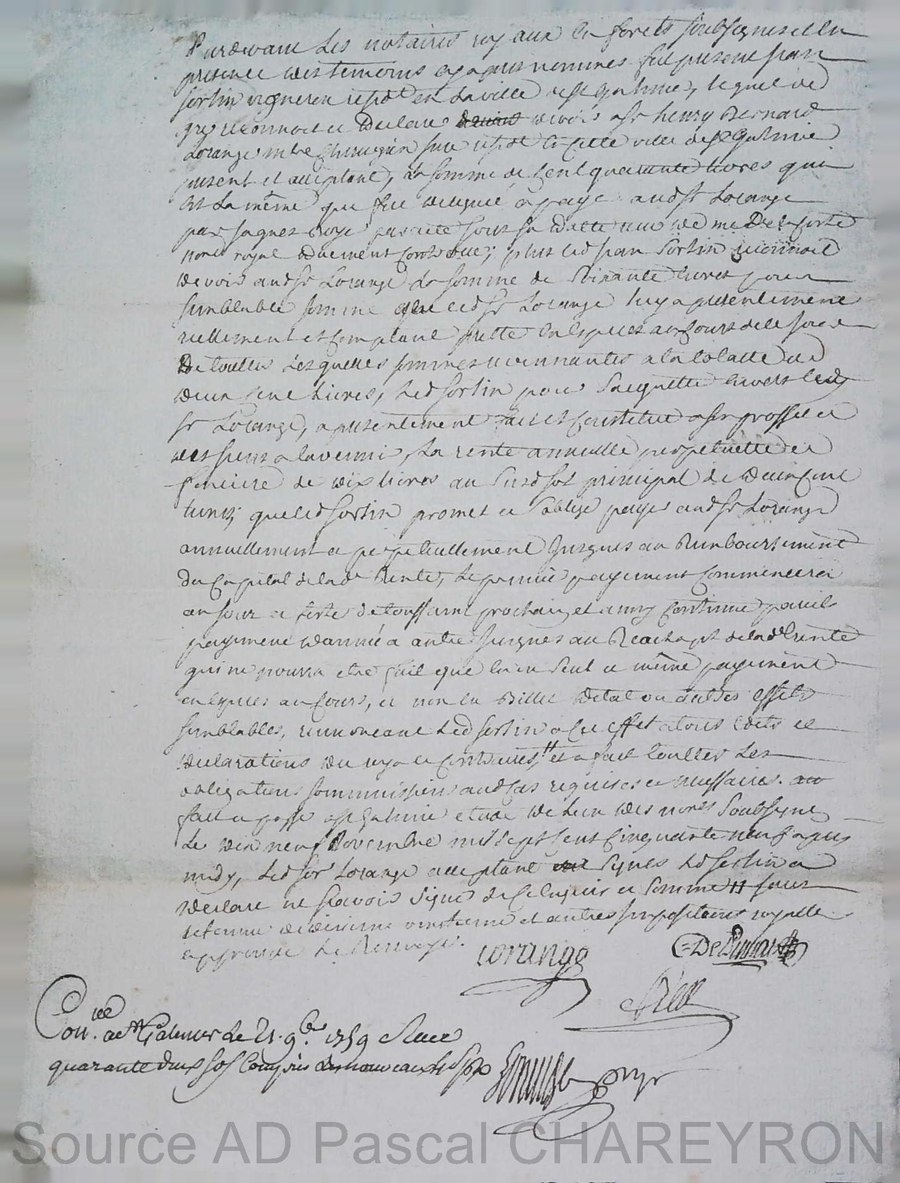 Pardevant Les notaires royaux en forets soubsignes et en
presence des temoins cy apres nommes fut present jean
Sortin vigneron resid.t en La ville de St galmier, lequel de
gre reconnoit et Declare devoir a Sr henry Bernard
Lorange m.tre Chirurgien juré resid.t en cette ville de St Galmier
present et acceptant, La somme de Cent quarante livres qui
est La même que fut delegué a payer aud.t Sr Lorange
par
nore royal duement controllée; plus led. jean Sortin reconnoit
devoir aud. Sr Lorange La somme de Soixante livres pour
semblable somme que led. Sr Lorange luy a presentement
reellement et comptant prette en especes au Cours de ce jour
De touttes Lesquelles sommes revennantes a la totalle de
deux cent livres, Led. Sortin pour S'acquitter envers led.
Sr Lorange, a presentement fait et constitué a son proffit et
des siens a l'avenir, La rente annuelle perpetuelle et
fonciere de dix livres au Susd. sol principal de deux cent
livres que led. Sortin promet et s'oblige payer aud. Sr Lorange
annuellement et perpetuellement Jusques au Remboursement
du Capital de lad. Rente, Le premier payement Commencera
au jour et feste de toussaint prochain, et ainsy Continuer pareils
payement d'année a autre Jusques au Reachapt de lad. rente
qui ne pourra etre fait que en un Seul et même payement
en especes au Cours, et non en Billet d'état ou autres effets
semblables, renonceant Led. Sortin a Cet effet a tous edits et
declarations du roy a ce contraires, et a fait touttes Les
obligations soummissions au cas requises et necessaires.
fait et passé a St Galmier etude de L'un des nores Soubsignes
Le dix neuf Novembre mil sept cent Cinquante neuf apres
midy, Led. Sr Lorange acceptant Signes Led. Sortin a
declaré ne Sçavoir Signer de Ce enquis et sommé sans
retenue de dixieme vingtieme et autres impositions royalle
approuvé Le Renvoy.
Lorange
Con.llé a St Galmier Le 21. 9.bre 1759 Reçu
quarante deux sols Compris Les nouveaux
Source AD Pascal CHAREYRON